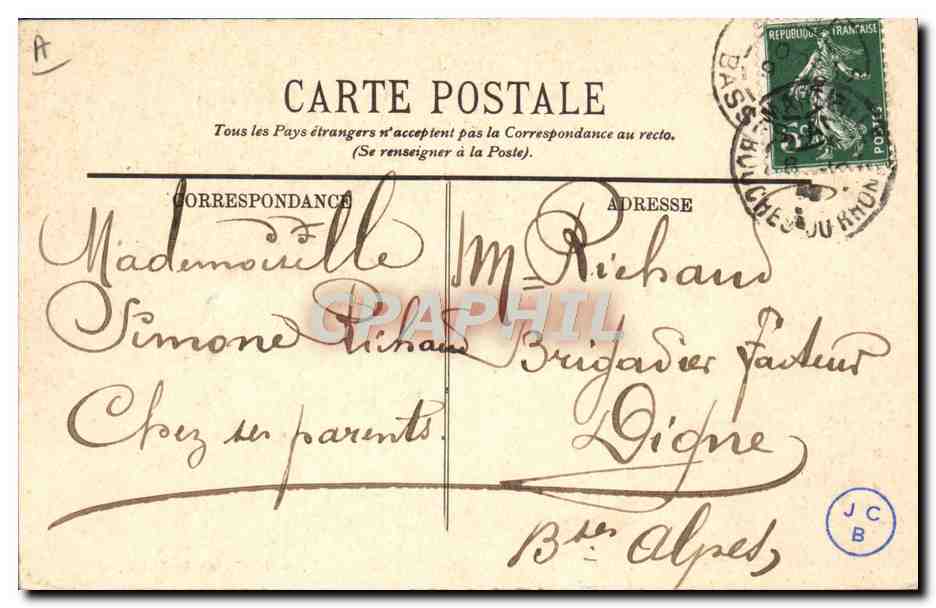 A
REPUBLIQUE FRANÇAISE
POSTES
BOUCHES-DU-RHONE
CARTE POSTALE
Tous les Pays étrangers n'acceptent pas la Correspondance au recto.
(Se renseigner à la Poste).
CORRESPONDANCE
Mademoiselle
Simone Richaud
Chez ses parents.
ADRESSE
M= Richaud
Brigadier Facteur
Digne
Bses Alpes,
CPAPHIL
J C
B